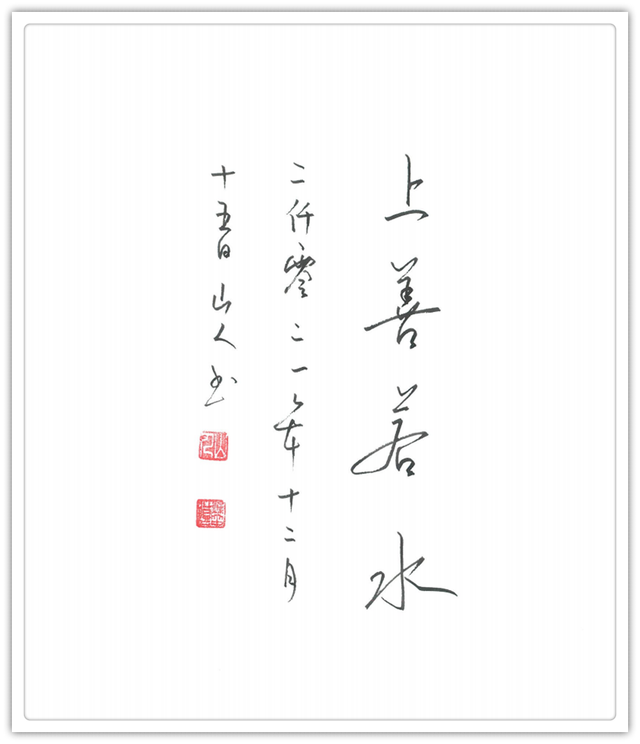 上善若水
二仟零二一年十二月
十五日 山人书
山人